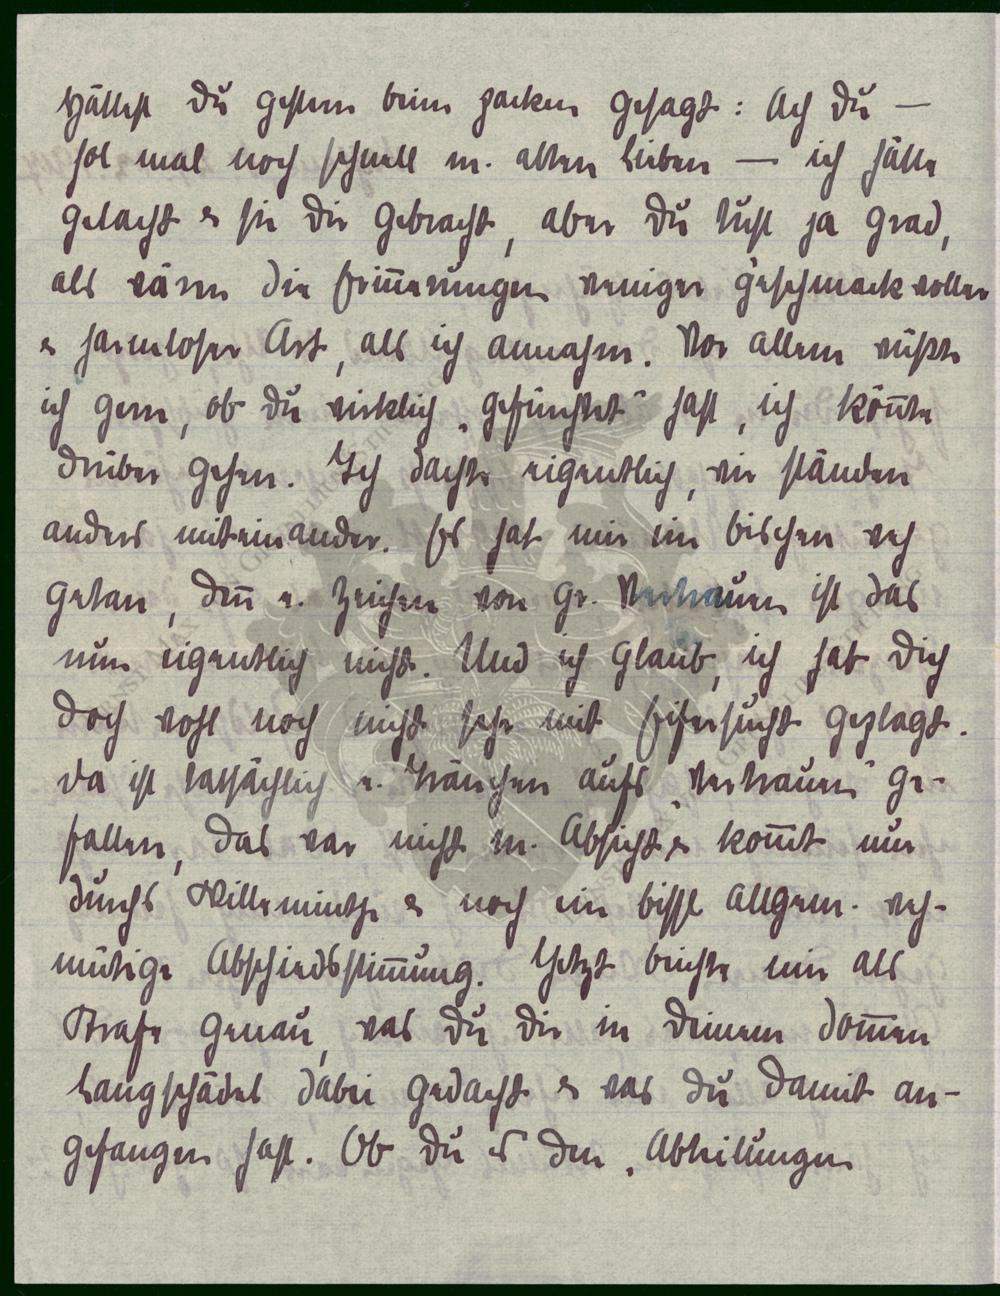 Hättest du gestern beim packen gesagt: Ach du —
hol mal noch schnell m. alten Lieben — ich hätte
gelacht & sie dir gebracht, aber du tust ja grad,
als wären die Erinnerungen weniger geschmackvoller
& harmloser Art, als ich annahm. Vor allem wüßte
ich gern, ob du wirklich „gefürchtet“ hast, ich könnte
drüber gehen. Ich dachte eigentlich, wir ständen
anders miteinander. Es hat mir ein bischen weh
getan, denn e. Zeichen von gr. Vertrauen ist das
nun eigentlich nicht. Und ich glaub, ich hab dich
doch wohl noch nicht sehr mit Eifersucht geplagt.
Da ist tatsächlich e. Tränchen aufs „Vertrauen“ ge-
fallen, das war nicht m. Absicht & kommt nur
durchs & noch ein bissl allgem. weh-
mütige Abschiedsstimmung. Jetzt beichte mir als
Strafe genau, was du dir in deinem dommen
Langschädel dabei gedacht & was du damit an-
gefangen hast. Ob du es den „Abteilungen